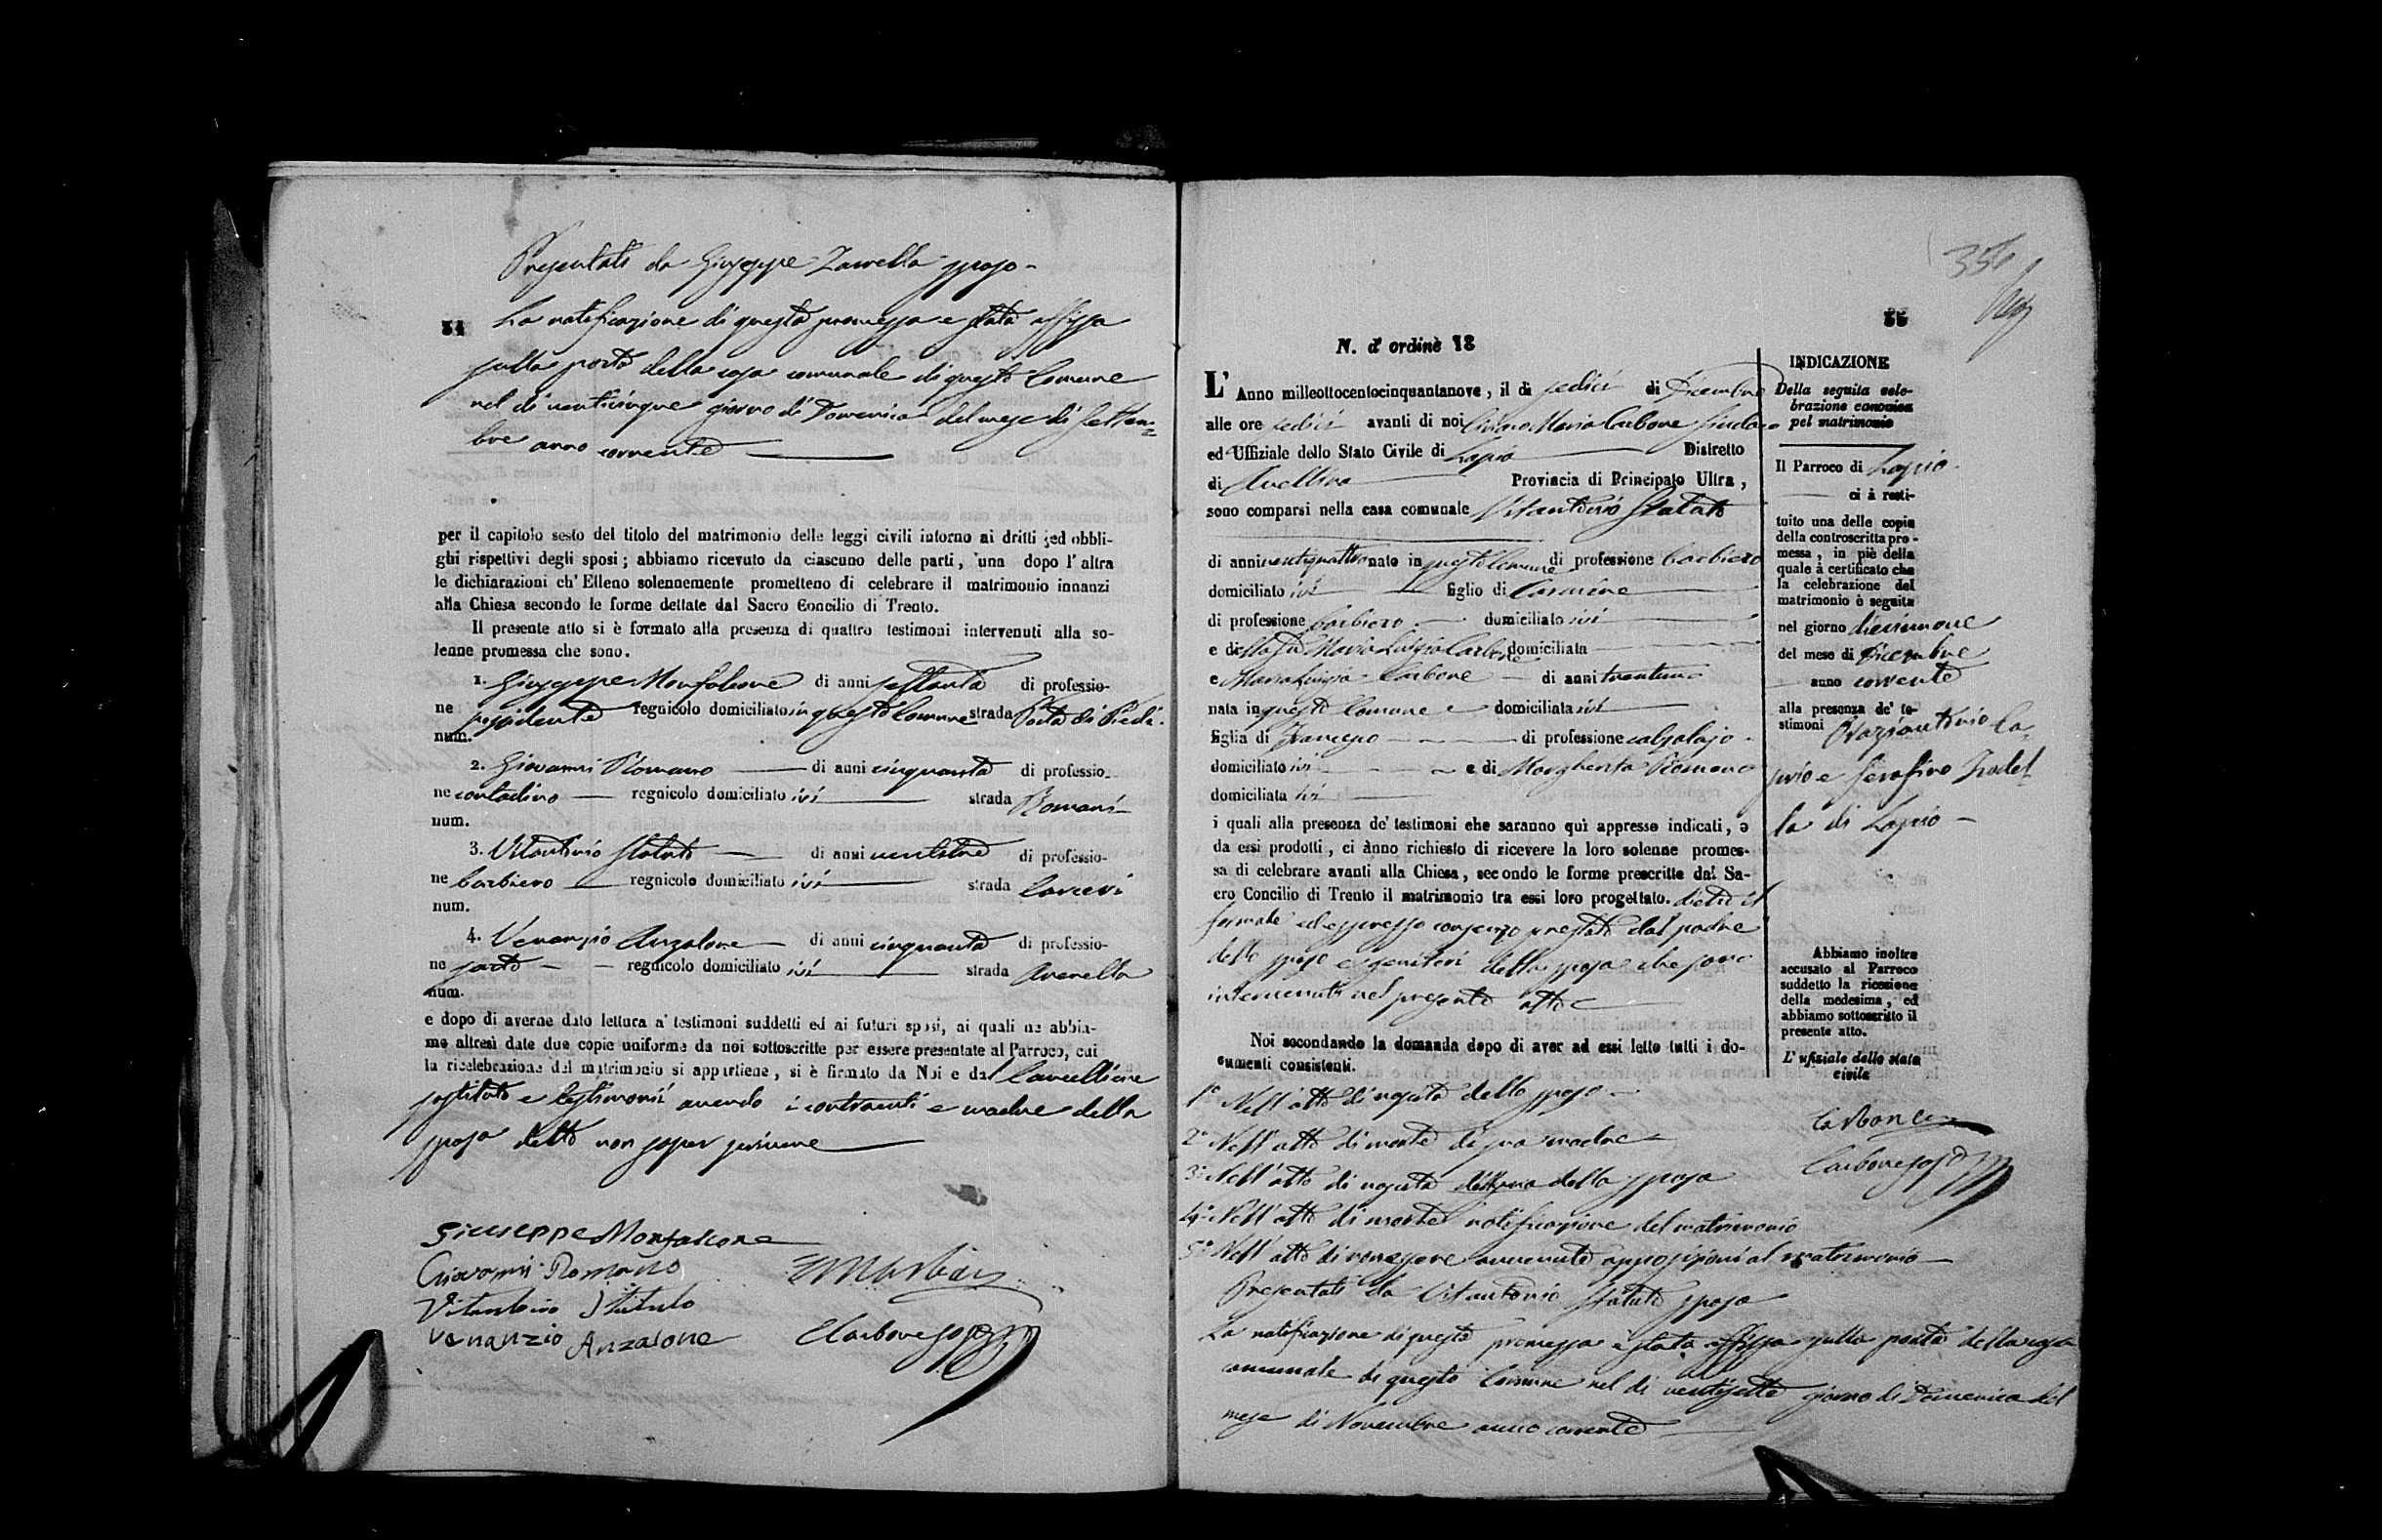 Presentati da Giuseppe Zarrella sposo -
34
La notificazione di questa promessa è stata affissa
sulla porta della casa comunale di questo Comune
nel dì venticinque giorno di Domenica del mese di Settem=
bre anno corrente
per il capitolo sesto del titolo del matrimonio delle leggi civili intorno ai dritti ed obbli-
ghi rispettivi degli sposi ; abbiamo ricevuto da ciascuno delle parti, una dopo l'altra
le dichiarazioni ch' Elleno solennemente prometteno di celebrare il matrimonio innanzi
alla Chiesa secondo le forme dettate dal Sacro Concilio di Trento.
Il presente atto si è formato alla presenza di quattro testimoni intervenuti alla so-
lenne promessa che sono.
1. Giuseppe Monfalcone di anni settanta di professio-
ne possidente regnicolo domiciliato in questo Comune strada Porta di Piedi.
num.
2. Giovanni Romano di anni cinquanta di professio-
ne contadino regnicolo domiciliato ivi strada Romani
num.
3. Vitantonio Statuto di anni ventitre di professio-
ne barbiero regnicolo domiciliato ivi strada Carceri
num.
4. Venanzio Anzalone di anni cinquanta di professio-
ne sarto regnicolo domiciliato ivi strada Avenella
num.
e dopo di averne dato lettura a' testimoni suddetti ed ai futuri sposi, ai quali ne abbia-
mo altresì date due copie uniforme da noi sottoscritte per essere presentate al Parroco, cui
la ricelebrazione del matrimonio si appartiene, si è firmato da Noi e dal Cancelliere
sostituto e testimonii avendo i contraenti e madre della
sposa detto non saper scrivere
Giuseppe Monfalcone
Giovanni Romano
Vitantonio Statuto
Venanzio Anzalone
Carbone sost
356
35
N. d' ordine 18
L' Anno milleottocentocinquantanove, il dì sedici di Dicembre
alle ore sedici avanti di noi Maria Carbone Sindaco
ed Uffiziale dello Stato Civile di Lapio Distretto
di Avellino Provincia di Principato Ultra,
sono comparsi nella casa comunale Vitantonio Statuto
di anni ventiquattro nato in questo Comune di professione barbiero
domiciliato ivi figlio di Carmine
di professione barbiero domiciliato ivi
e di la fu Maria Luigia Carbone domiciliata
e Maria Luigia Carbone di anni trentuno
nata in questo Comune domiciliata ivi
figlia di Francesco di professione calzolajo
domiciliato ivi e di Margherita Romano
domiciliata ivi
i quali alla presenza de' testimoni che saranno quì appresso indicati, e
da essi prodotti, ci ànno richiesto di ricevere la loro solenne promes-
sa di celebrare avanti alla Chiesa, secondo le forme prescritte dal Sa-
cro Concilio di Trento il matrimonio tra essi loro progettato. dietro il
formale ed espresso consenso prestato dal padre
dello sposo e genitori della sposa che sono
intervenuti nel presente atto
Noi secondando la domanda dopo di aver ad essi letto tutti i do-
cumenti consistenti.
1º Nell' atto di nascita dello sposo
2º Nell' atto di morte di sua madre
3º Nell' atto di nascita della sposa
4º Nell' atto di notificazione del matrimonio
5º Nell' atto di non essere avvenute opposizioni al matrimonio
Presentati da Vitantonio Statuto sposo
La notificazione di questa promessa è stata affissa sulla porta della casa
comunale di questo Comune nel dì ventisette giorno di Domenica del
mese di Novembre anno corrente
INDICAZIONE
Della seguita cele-
brazione canonica
pel matrimonio
Il Parroco di Lapio
ci à resti-
tuito una delle copie
della controscritta pro-
messa, in piè della
quale à certificato che
la celebrazione del
matrimonio è seguita
nel giorno diecinnove
del mese di Dicembre
anno corrente
alla presenza de' te-
stimoni Oraziantonio Ca-
prio e Serafino Iradel-
la di Lapio
Abbiamo inoltre
accusato al Parroco
suddetto la ricezione
della medesima, ed
abbiamo sottoscritto il
presente atto.
L' ufiziale dello stato
civile
Carbone
Carbone sost